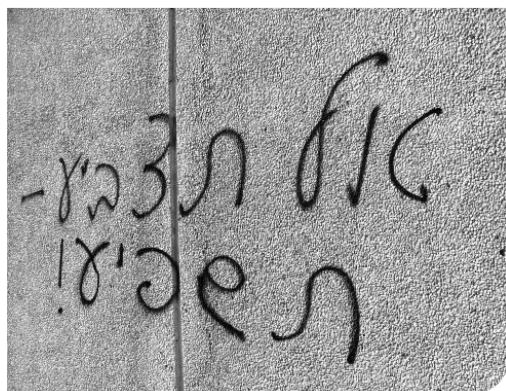 אל תצביע -
תשפיע!